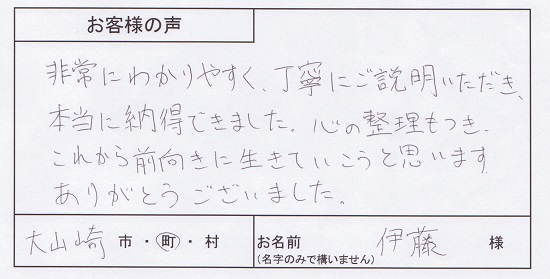 お客様の声
非常にわかりやすく、丁寧にご説明いただき、
本当に納得できました。心の整理もつき、
これから前向きに生きていこうと思います
ありがとうございました。
大山崎 市・町・村 お名前 伊藤 様
(名字のみで構いません)